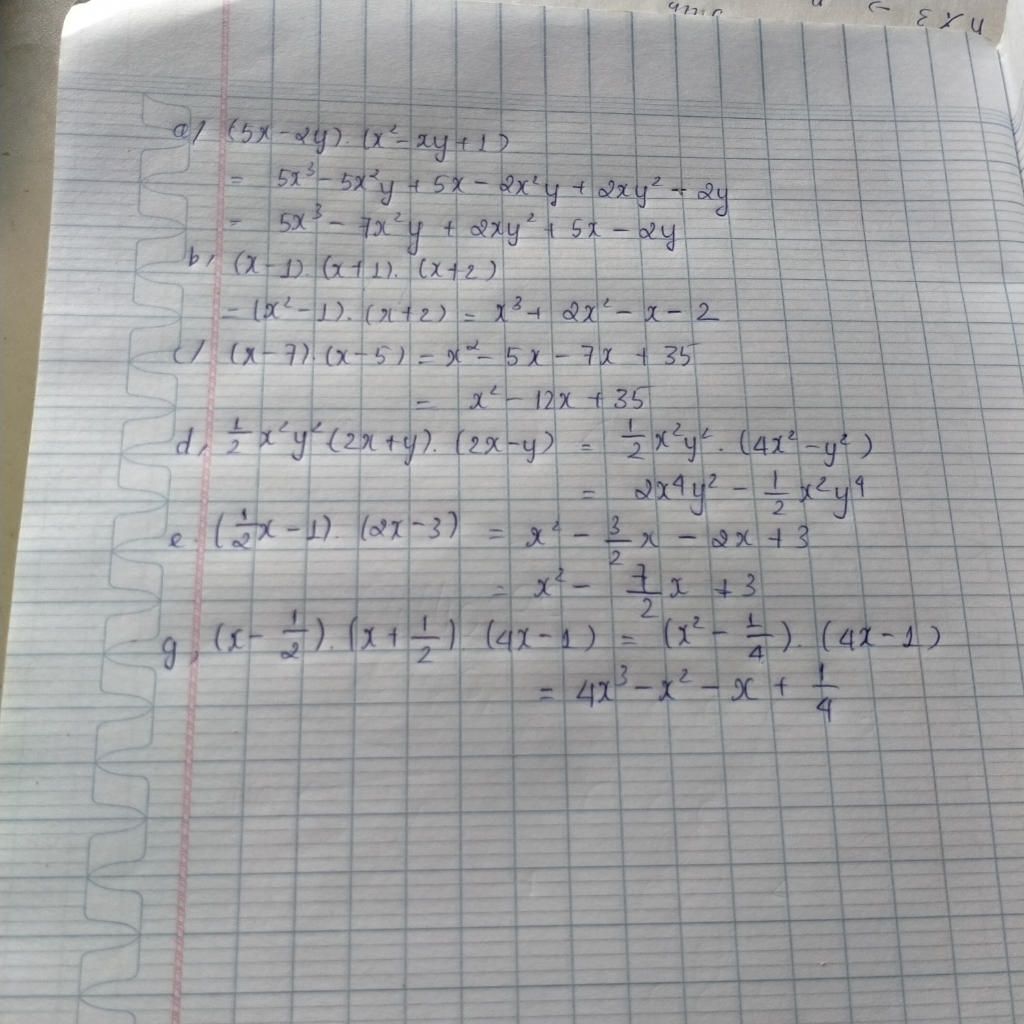 a) (5x-2y).(x²-xy+1)
= 5x³-5x²y+5x-2x²y+2xy²-2y
= 5x³-7x²y+2xy²+5x-2y
b, (x-1).(x+1).(x+2)
= (x²-1).(x+2) = x³+2x²-x-2
c) (x-7).(x-5) = x²-5x-7x+35
= x²-12x+35
d, 1/2 x²y²(2x+y).(2x-y) = 1/2 x²y².(4x²-y²)
= 2x⁴y² - 1/2 x²y⁴
e. (1/2 x-1).(2x-3) = x² - 3/2 x - 2x + 3
= x² - 7/2 x + 3
g, (x - 1/2).(x + 1/2).(4x-1) = (x² - 1/4).(4x-1)
= 4x³ - x² - x + 1/4